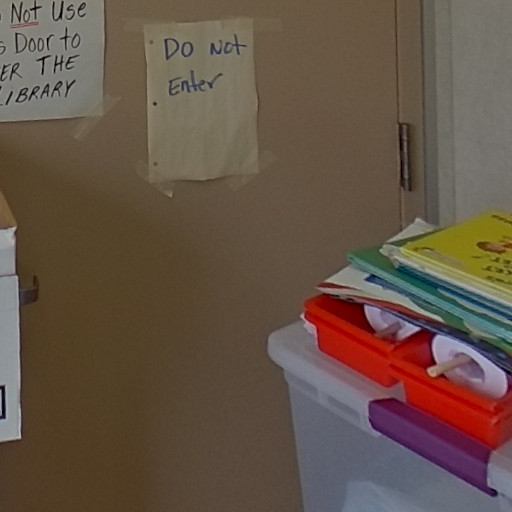 Not Use
Door to
THE
LIBRARY
Do Not
Enter